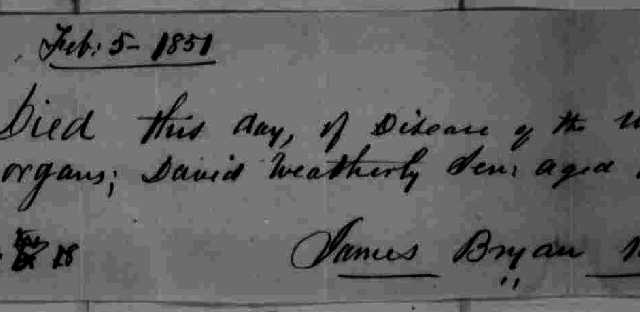 Feb: 5- 1851
Died this day, of Disease of the
organs; David Weatherly Sen: aged
18
James Bryan